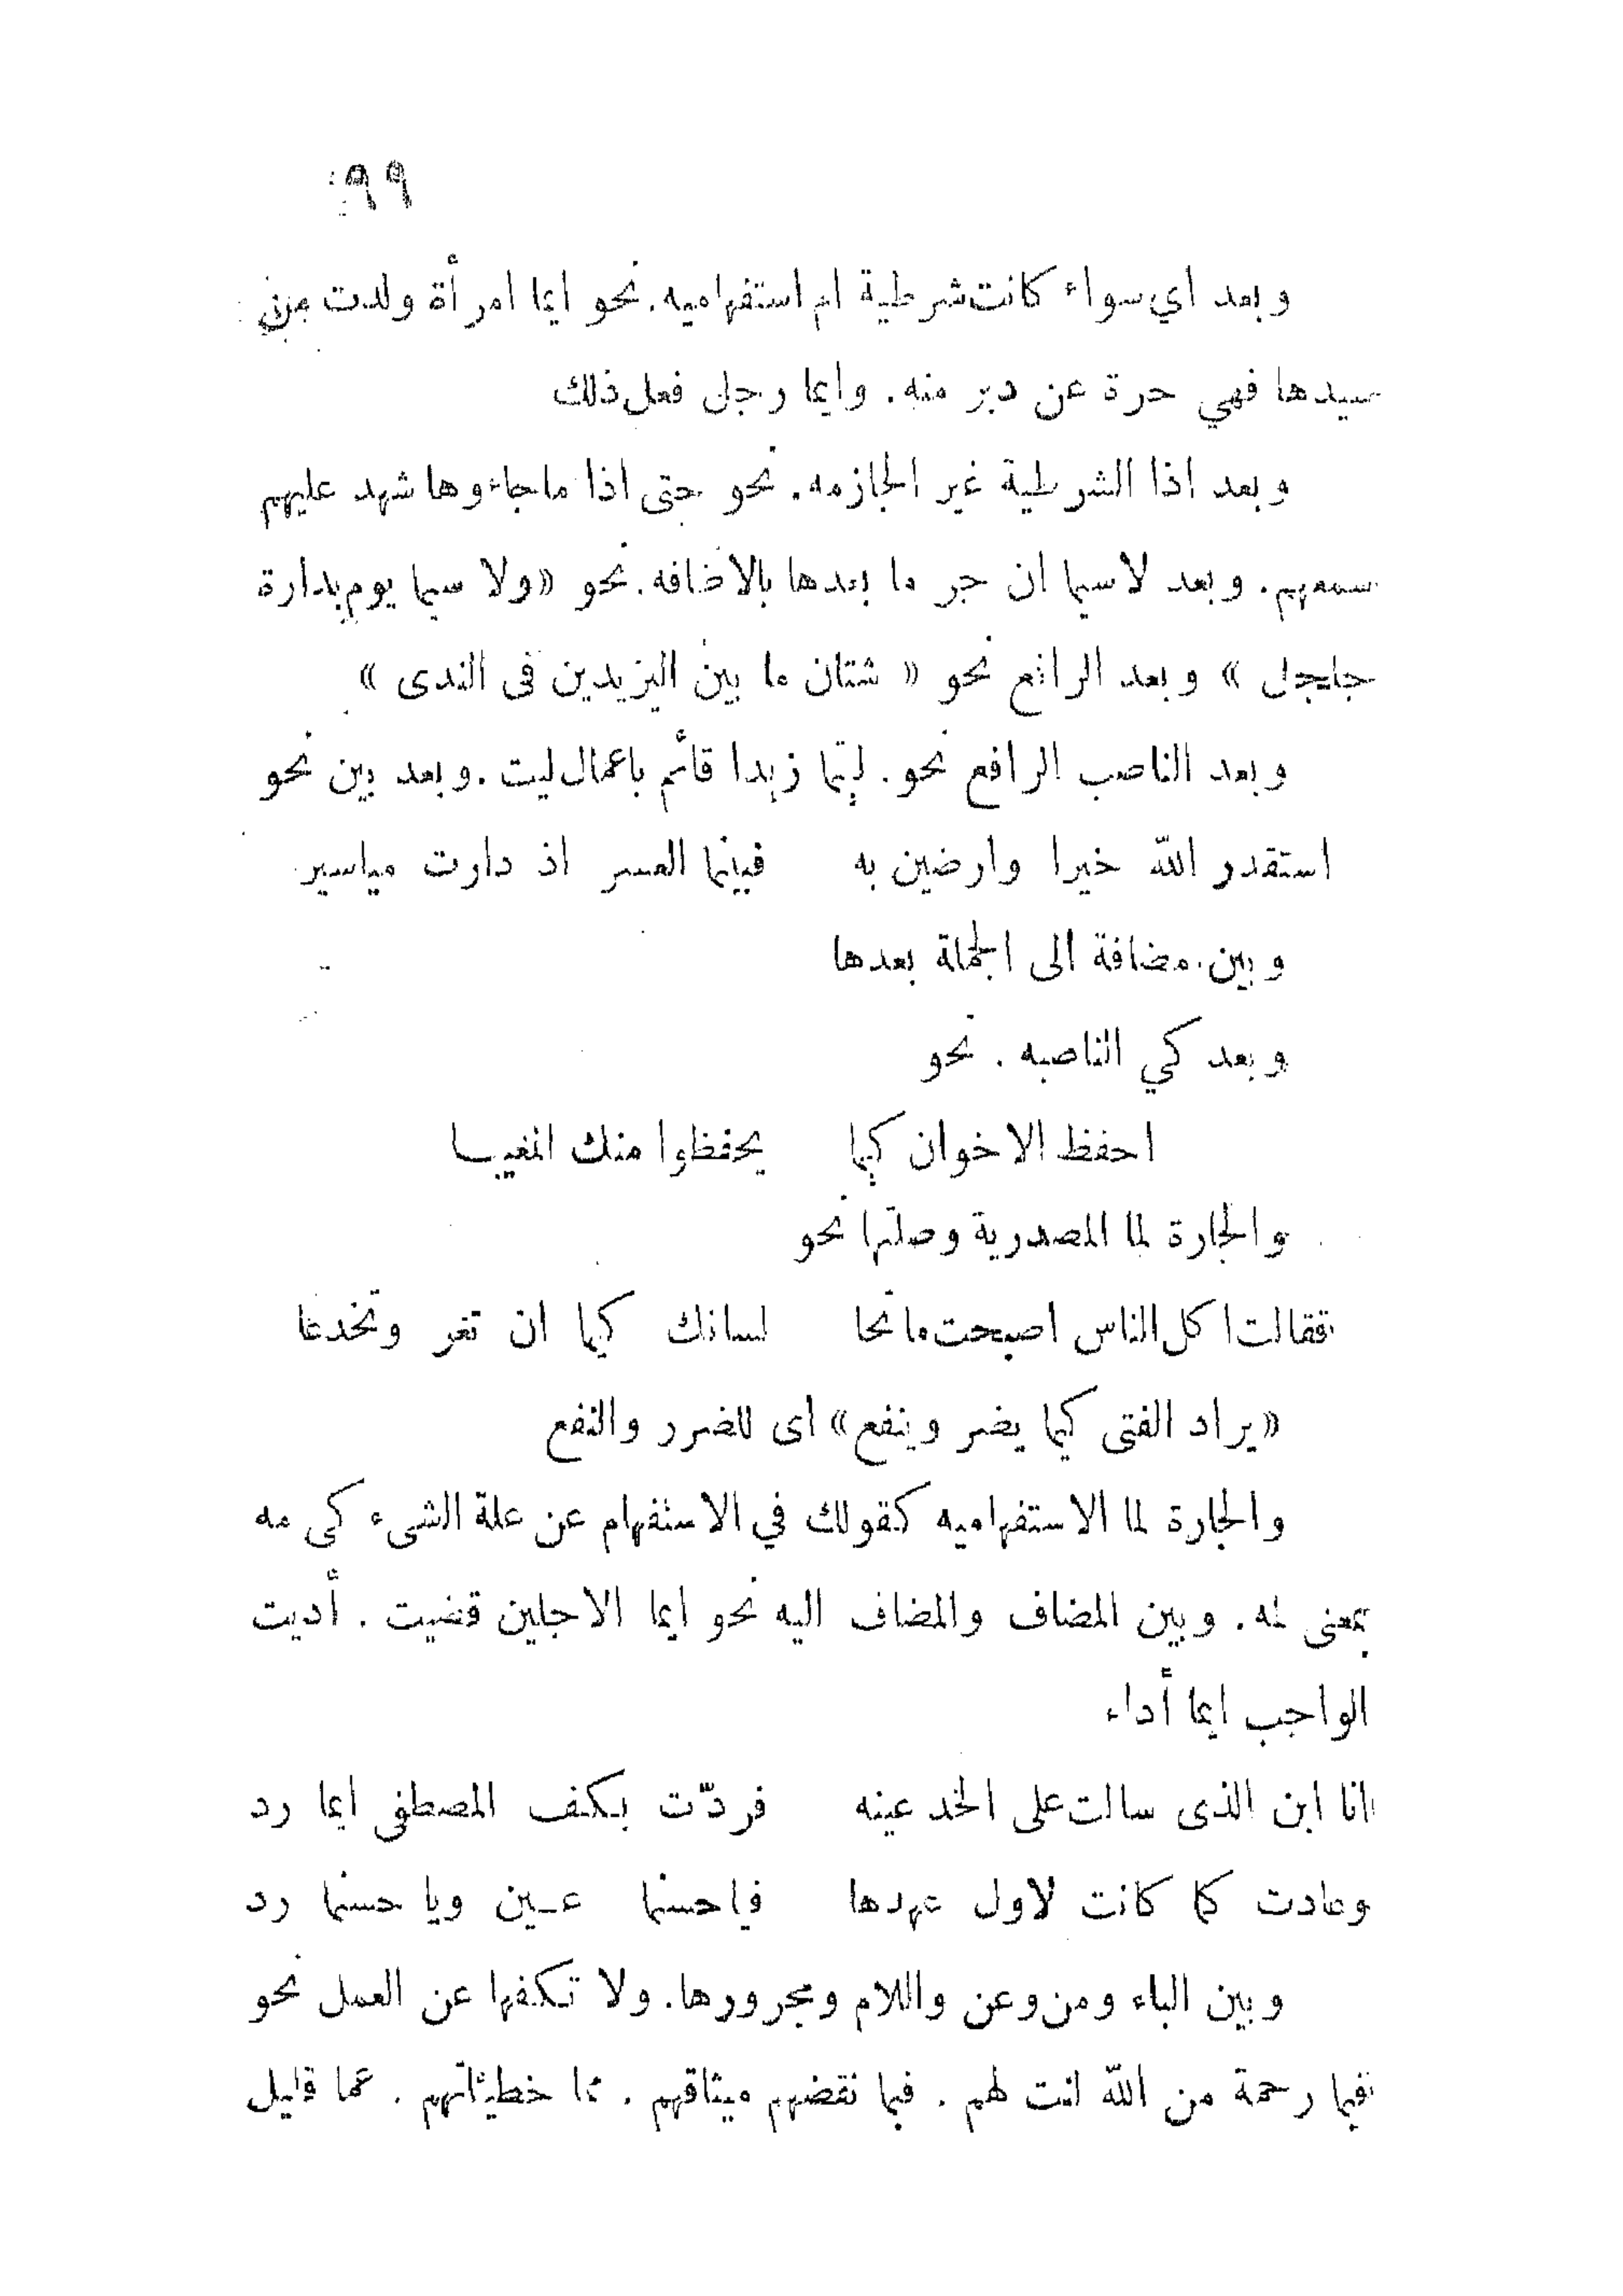 ٩٩
وبعد اي سواء كانت شرطية ام استفهاميه. نحو ايما امرأة ولدت من
سيدها فهي حرة عن دبر منه. وايما رجل فعل ذلك
وبعد اذا الشرطية غير الجازمه. نحو حتى اذا ماجاءوها شهد عليهم
سمعهم. وبعد لاسيما ان جر ما بعدها بالاضافه. نحو «ولا سيما يوم بدارة
جلجل» وبعد الرافع نحو « شتان ما بين اليزيدين في الندى »
وبعد الناصب الرافع نحو. ليتما زيدا قائم باعمال ليت. وبعد بين نحو
استقدر اللّه خيرا وارضين به فبينما العسر اذ دارت مياسير
وبين مضافة الى الجملة بعدها
وبعد كي الناصبه. نحو
احفظ الاخوان كيما يحفظوا منك المغيبا
والجارة لما المصدرية وصلتها نحو
فقالت اكل الناس اصبحت مانحا لسانك كيما ان تغر وتخدعا
«يراد الفتى كيما يضر وينفع» اى للضرر والنفع
والجارة لما الاستفهاميه كقولك في الاستفهام عن علة الشىء كى مه
بمعنى لمه. وبين المضاف والمضاف اليه نحو ايما الاجلين قضيت. أديت
الواجب ايما أداء
انا ابن الذى سالت على الخد عينه فردّت بكف المصطفى ايما رد
وعادت كما كانت لاول عهدها فياحسنها عين ويا حسنها رد
وبين الباء ومن وعن واللام ومجرورها. ولا تكفها عن العمل نحو
فبما رحمة من اللّه لنت لهم. فبما نقضهم ميثاقهم. مما خطيئاتهم. عما قليل